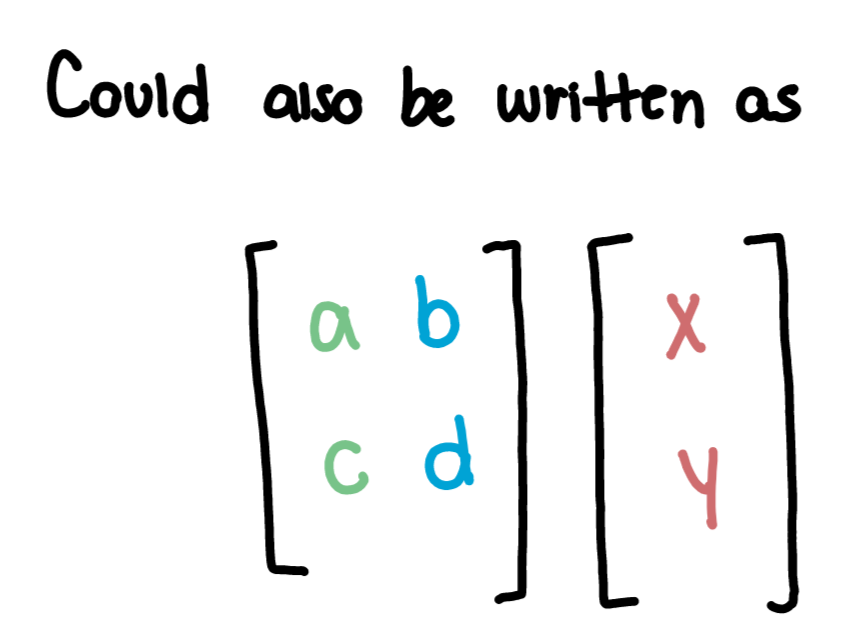 Could also be written as
a b x
c d y